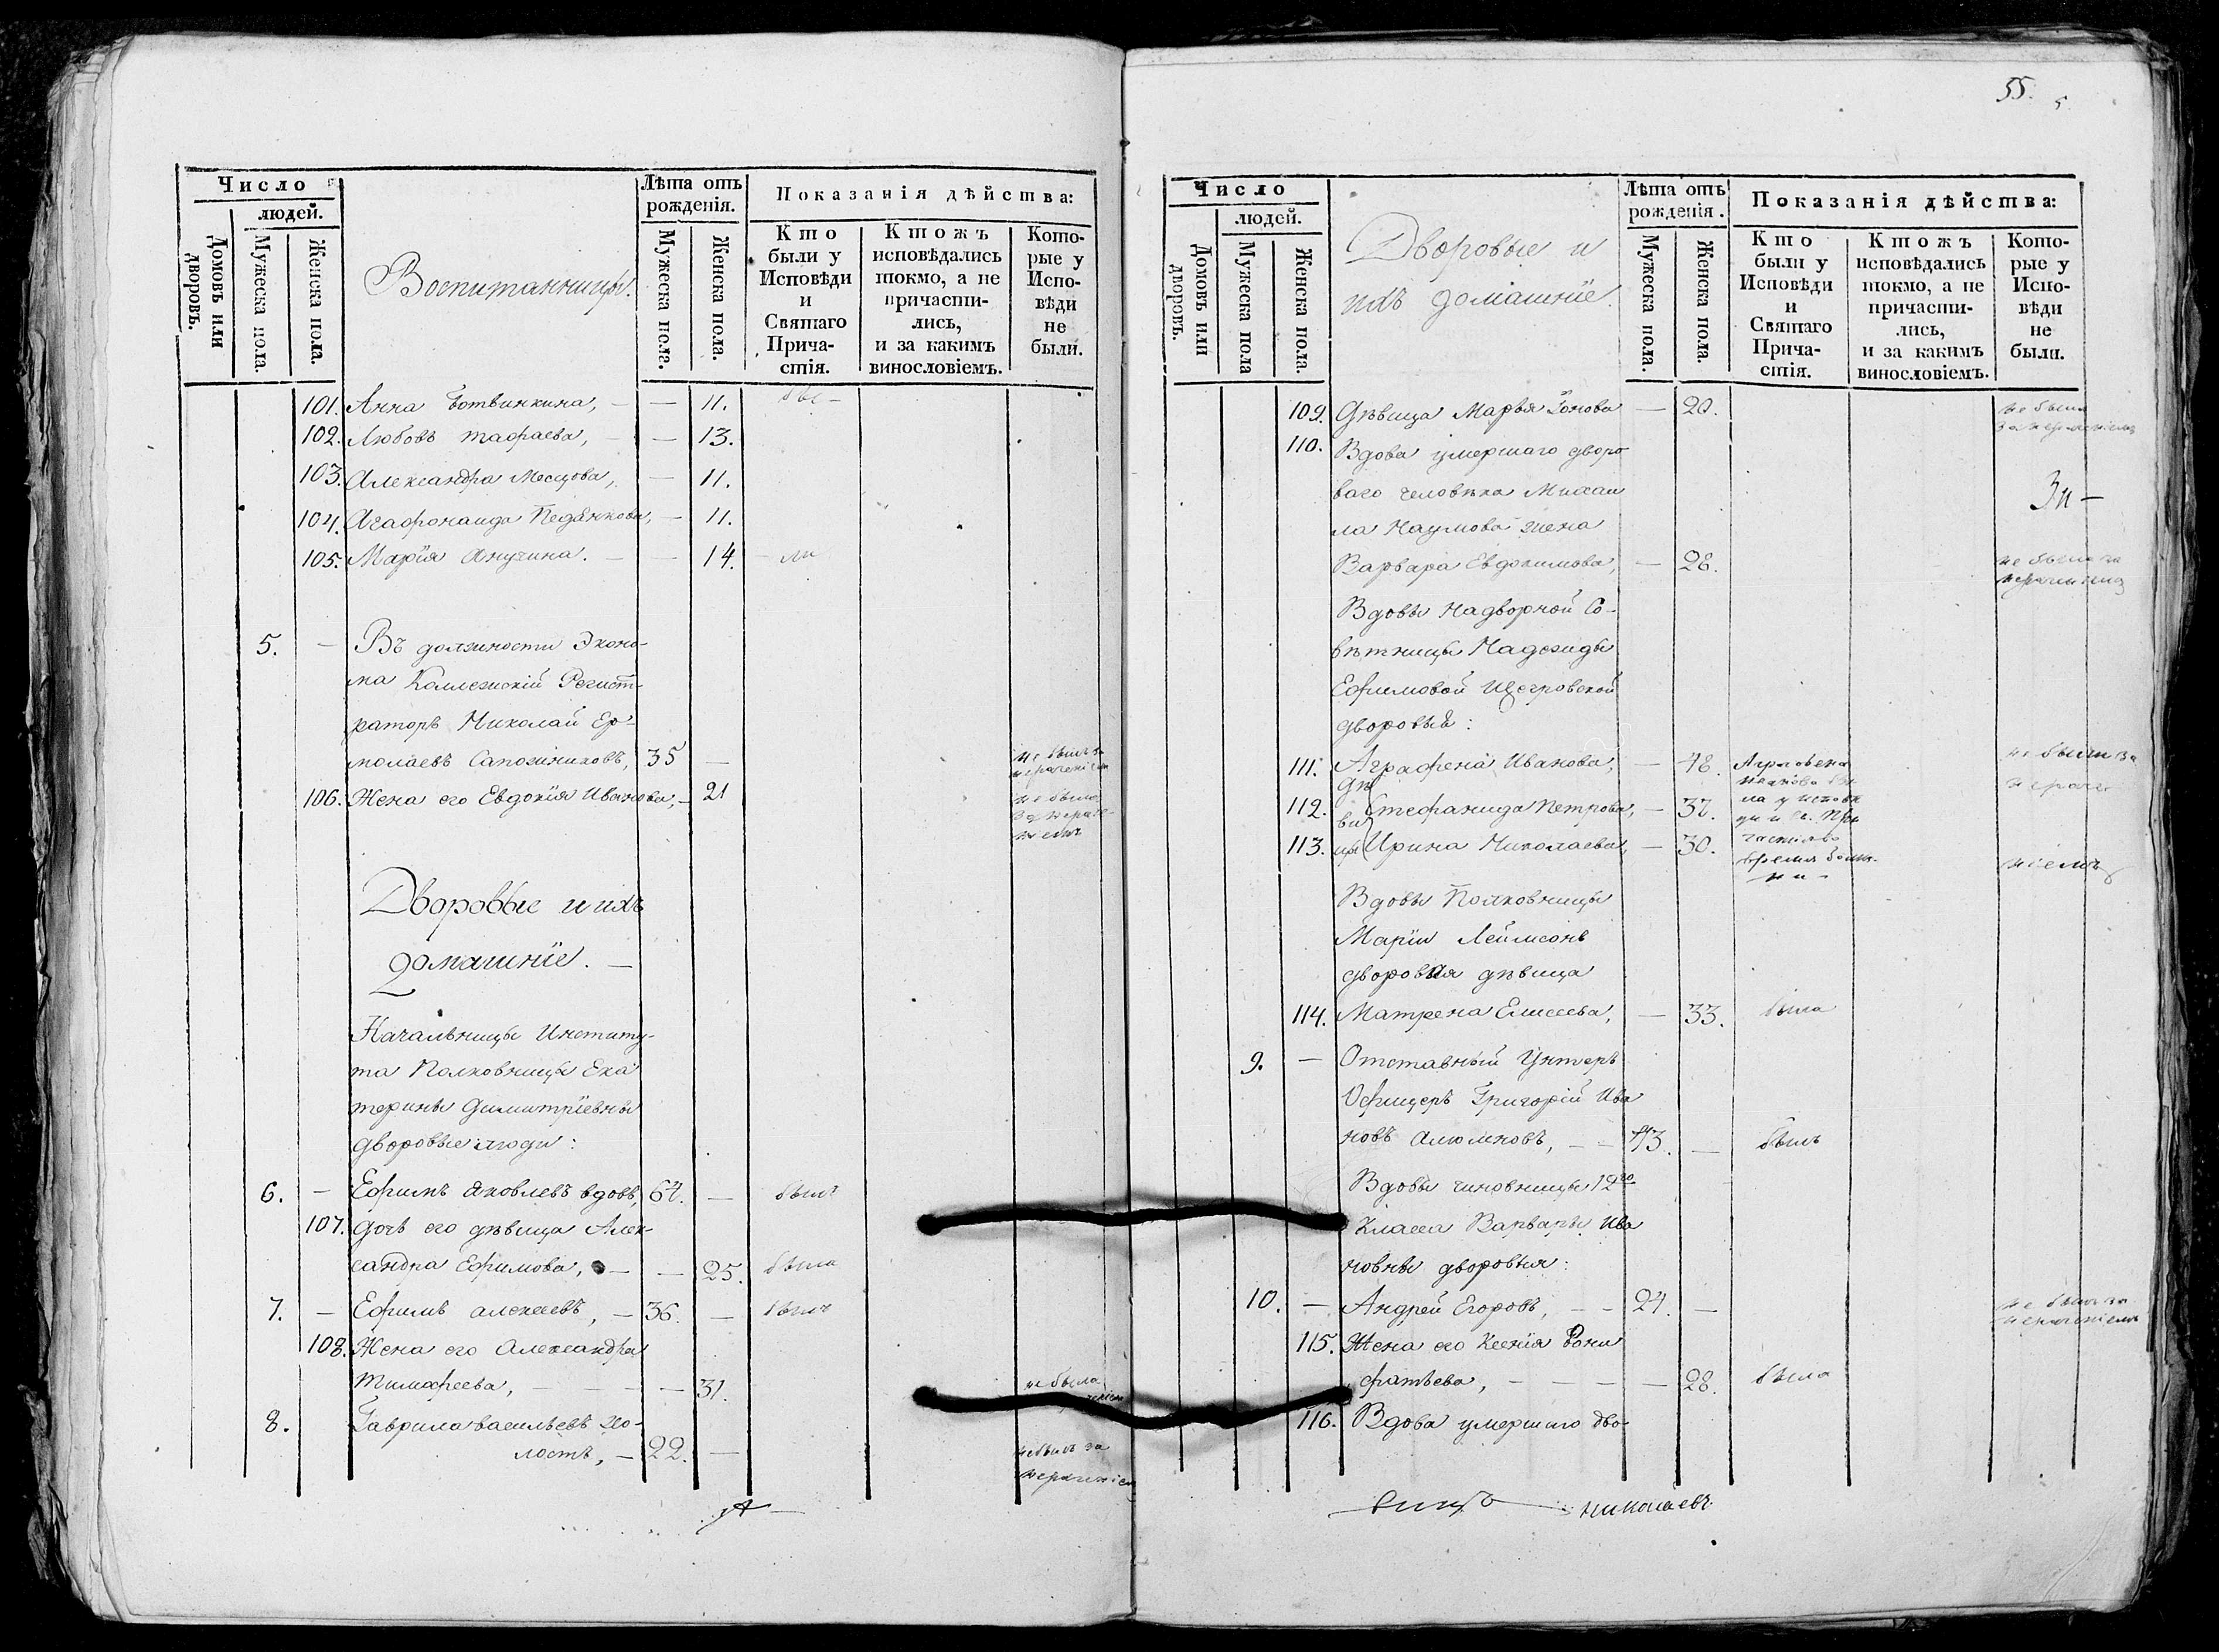 Число
людей.
Домовъ или дворовъ.
Мужеска пола.
Женска пола.
Воспитанницы.
Лѣта отъ рожденія.
Мужеска пола.
Женска пола.
Показанія дѣйства:
Кто были у Исповѣди и Святаго Прича-стія.
Ктожъ исповѣдались токмо, а не причасти-лись, и за какимъ винословіемъ.
Кото-рые у Испо-вѣди не были.
101. Анна Ботвинкина, — — 11. бы-
102. Любовь — 13.
103. Александра — 11.
104. — 11.
105. Марія Анучина. — — 14. — ли
5. — Въ должности Эконо-
ма Коллежскій Регист-
раторъ Николай Ер-
молаевъ Сапожниковъ, 35 — не былъ за
нераченіем
106. Жена его Евдокія Иванова, — 21 не была
за нераче-
ніемъ
Дворовые и ихъ
домашніе. —
Начальницы Институ-
та Полковницы Ека
терины Димитріевны
дворовые люди:
6. — Ефимъ Яковлевъ вдовъ, 64. — былъ
107. Дочь его дѣвица Алек-
сандра Ефимова, — — 25. была
7. — Ефимъ Алексеевъ, — 36. — былъ
108. Жена его Александра
Тимофеева, — — — — 31. не была
8. Гаврила Васильевъ хо-
лостъ, — 22. — не былъ за
нераченіем
55.
5
Число
людей.
Домовъ или дворовъ.
Мужеска пола
Женска пола.
Дворовые и
ихъ домашніе.
Лѣта отъ рожденія.
Мужеска пола.
Женска пола.
Показанія дѣйства:
Кто были у Исповѣди и Святаго Прича-стія.
Ктожъ исповѣдались токмо, а не причасти-лись, и за какимъ винословіемъ.
Кото-рые у Испо-вѣди не были.
109. Дѣвица Марья — 20. не была
за нераченіемъ
110. Вдова умершаго дворо
ваго человѣка Михаи
ла Наумова жена
Варвара Евдокимова, — 28. не была за
Вдовы Надворной Со-
вѣтницы Надежды
Ефимовой
дворовыя:
111. Аграфена Иванова, — 48. Аграфена
Иванова бы
ла у исповѣ
ди и Св. При
частія во
время болѣз
ни — не были за
нераче
ніемъ
112. Дѣ
ви
цы Стефанида Петрова, — 37.
113. Ирина Николаева, — 30.
Вдовы Полковницы
Маріи
дворовая дѣвица
114. Матрена Елисеева, — 33. была
9. — Отставный Унтеръ
Офицеръ Григорій Ива
новъ — — 43. — былъ
Вдовы чиновницы 12го
класса Варвары Ива
новны дворовыя:
10. — Андрей Егоровъ, — — 24. — не былъ за
нераченіемъ
115. Жена его Ксенія Бони
фатьева, — — — — 28. была
116. Вдова умершаго дво-
Николаевъ.